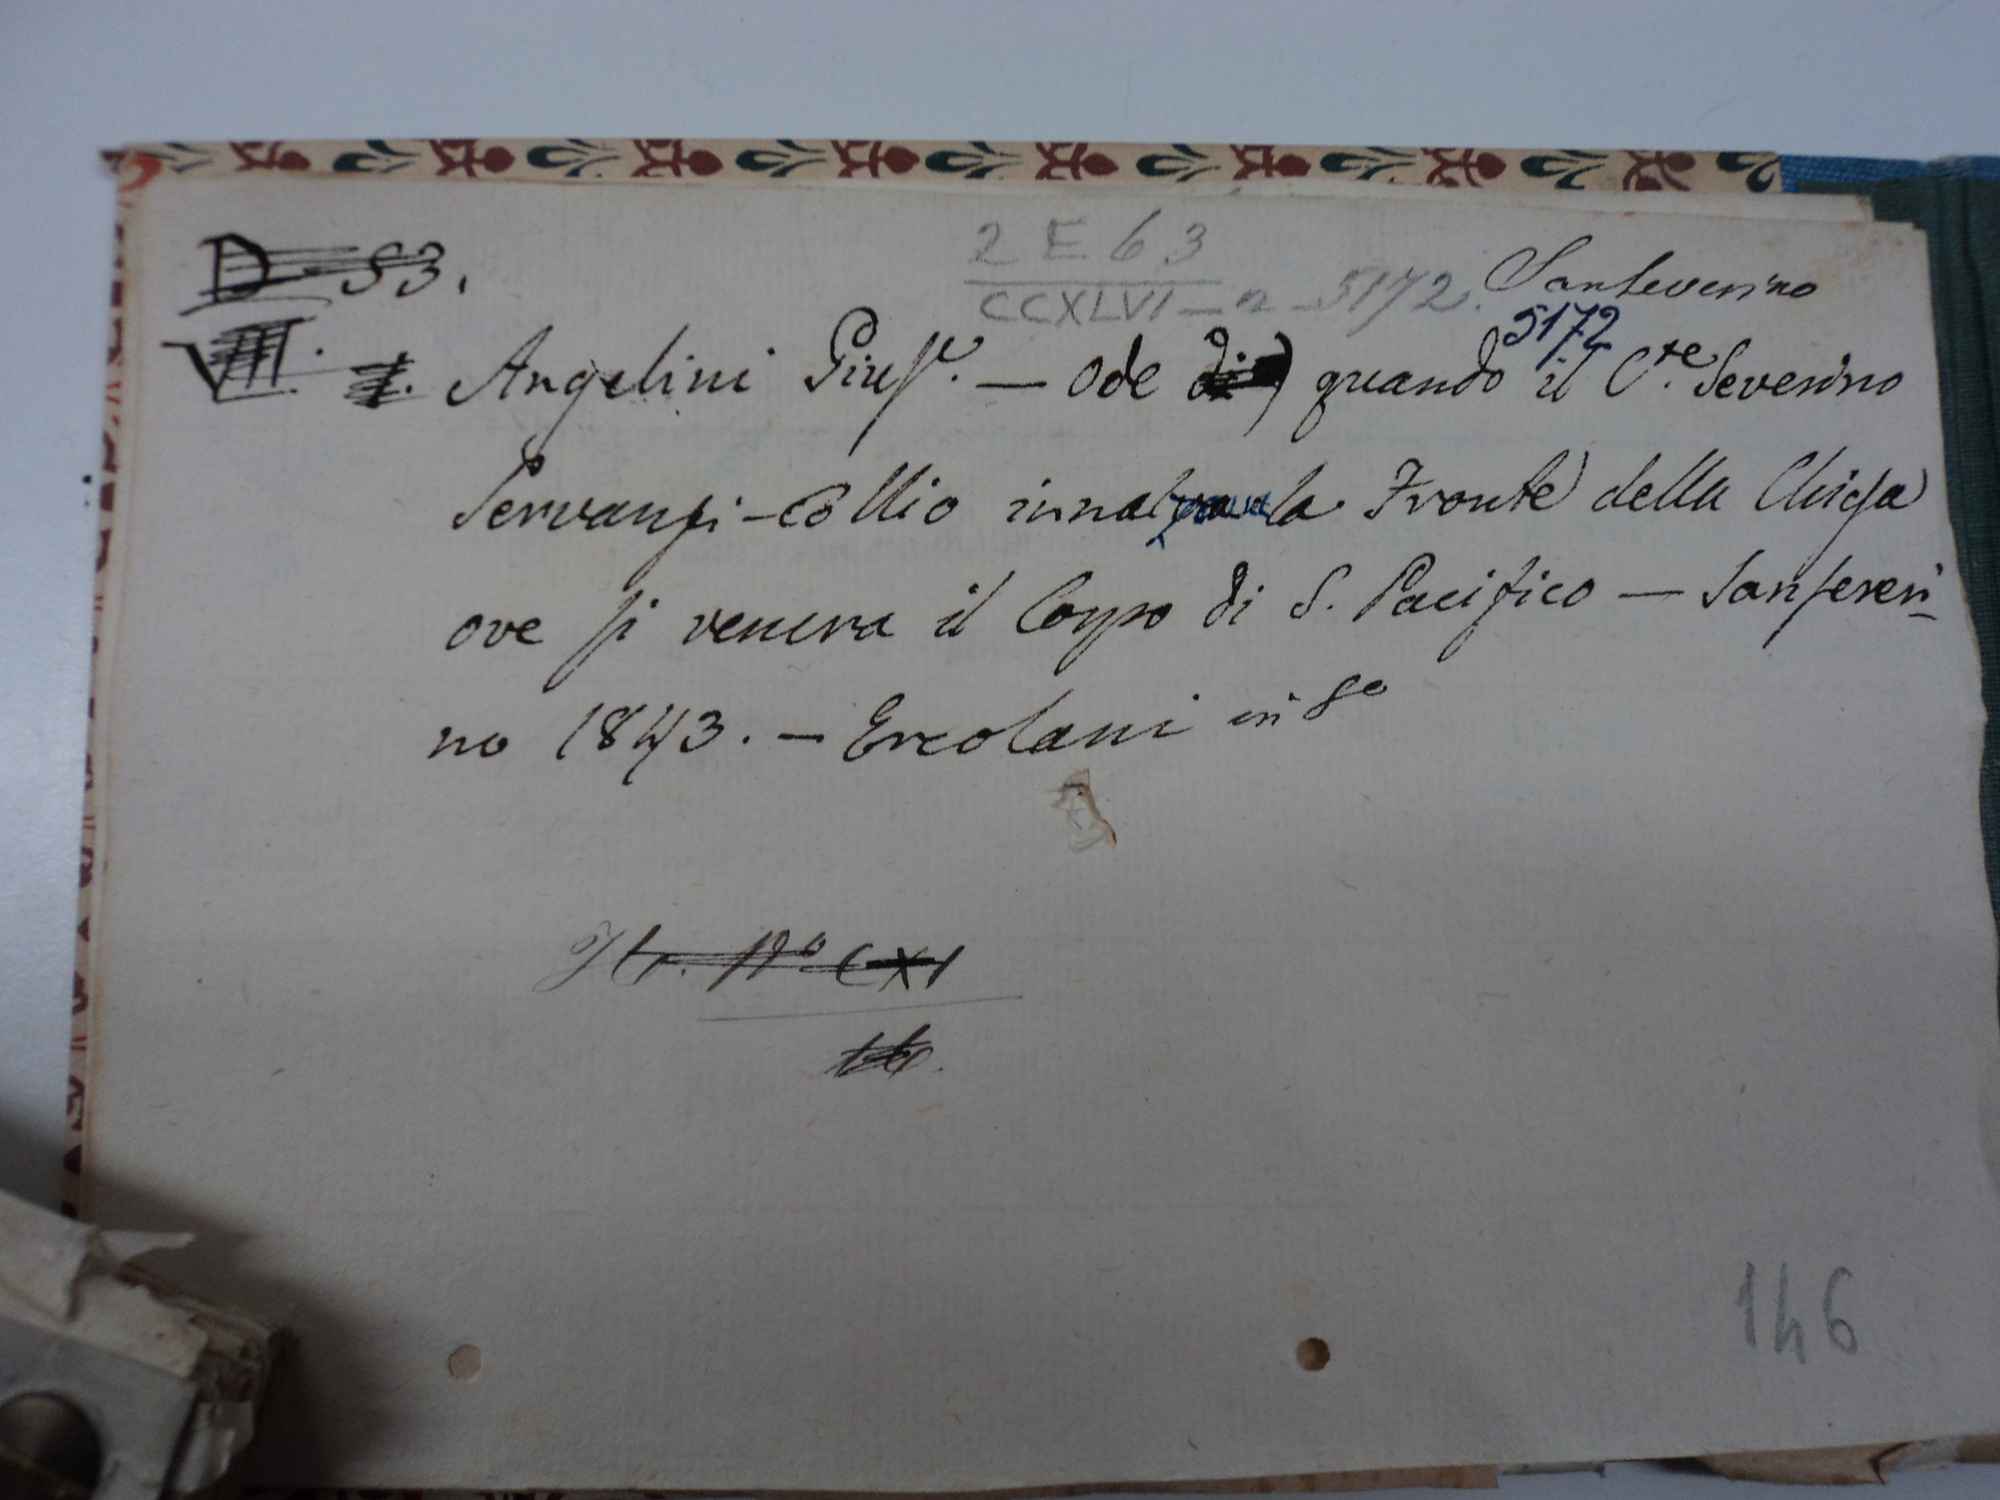 D 53.
2 E 63
CCXLVI - n - 5172.
Sanseverino
5172
VIII. Angelini Giusᵉ. — Ode quando il Cᵗᵉ. Severino
Servanzi-Collio innalzava la Fronte della Chiesa
ove si venera il Corpo di S. Pacifico — Sanseveri-
no 1843. — Ercolani in 8º
Nº CXI
146